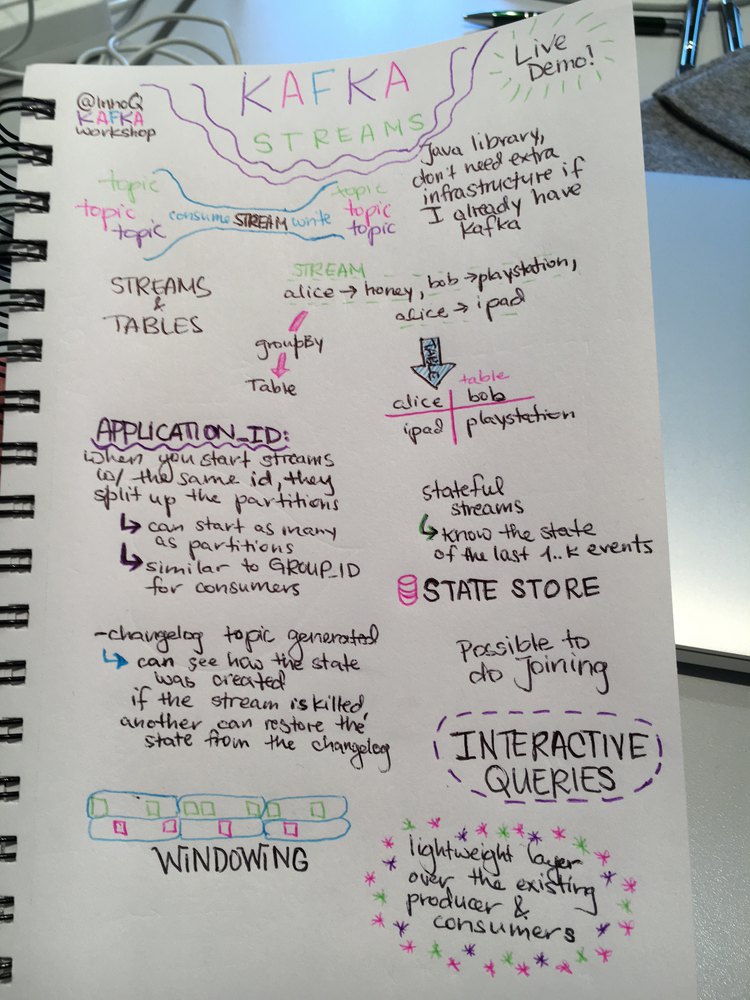 @InnoQ
KAFKA
workshop
KAFKA
STREAMS
Live
Demo!
topic
topic
topic
consume STREAM write
topic
topic
topic
Java library,
don't need extra
infrastructure if
I already have
Kafka
STREAMS
&
TABLES
STREAM
alice → honey, bob → playstation,
alice → ipad
groupBy
Table
TABLE
table
alice bob
ipad playstation
APPLICATION_ID:
when you start streams
w/ the same id, they
split up the partitions
↳ can start as many
as partitions
↳ similar to GROUP_ID
for consumers
stateful
streams
↳ know the state
of the last 1..k events
STATE STORE
-changelog topic generated
↳ can see how the state
was created
if the stream is killed,
another can restore the
state from the changelog
Possible to
do Joining
INTERACTIVE
QUERIES
WINDOWING
lightweight layer
over the existing
producer &
consumers